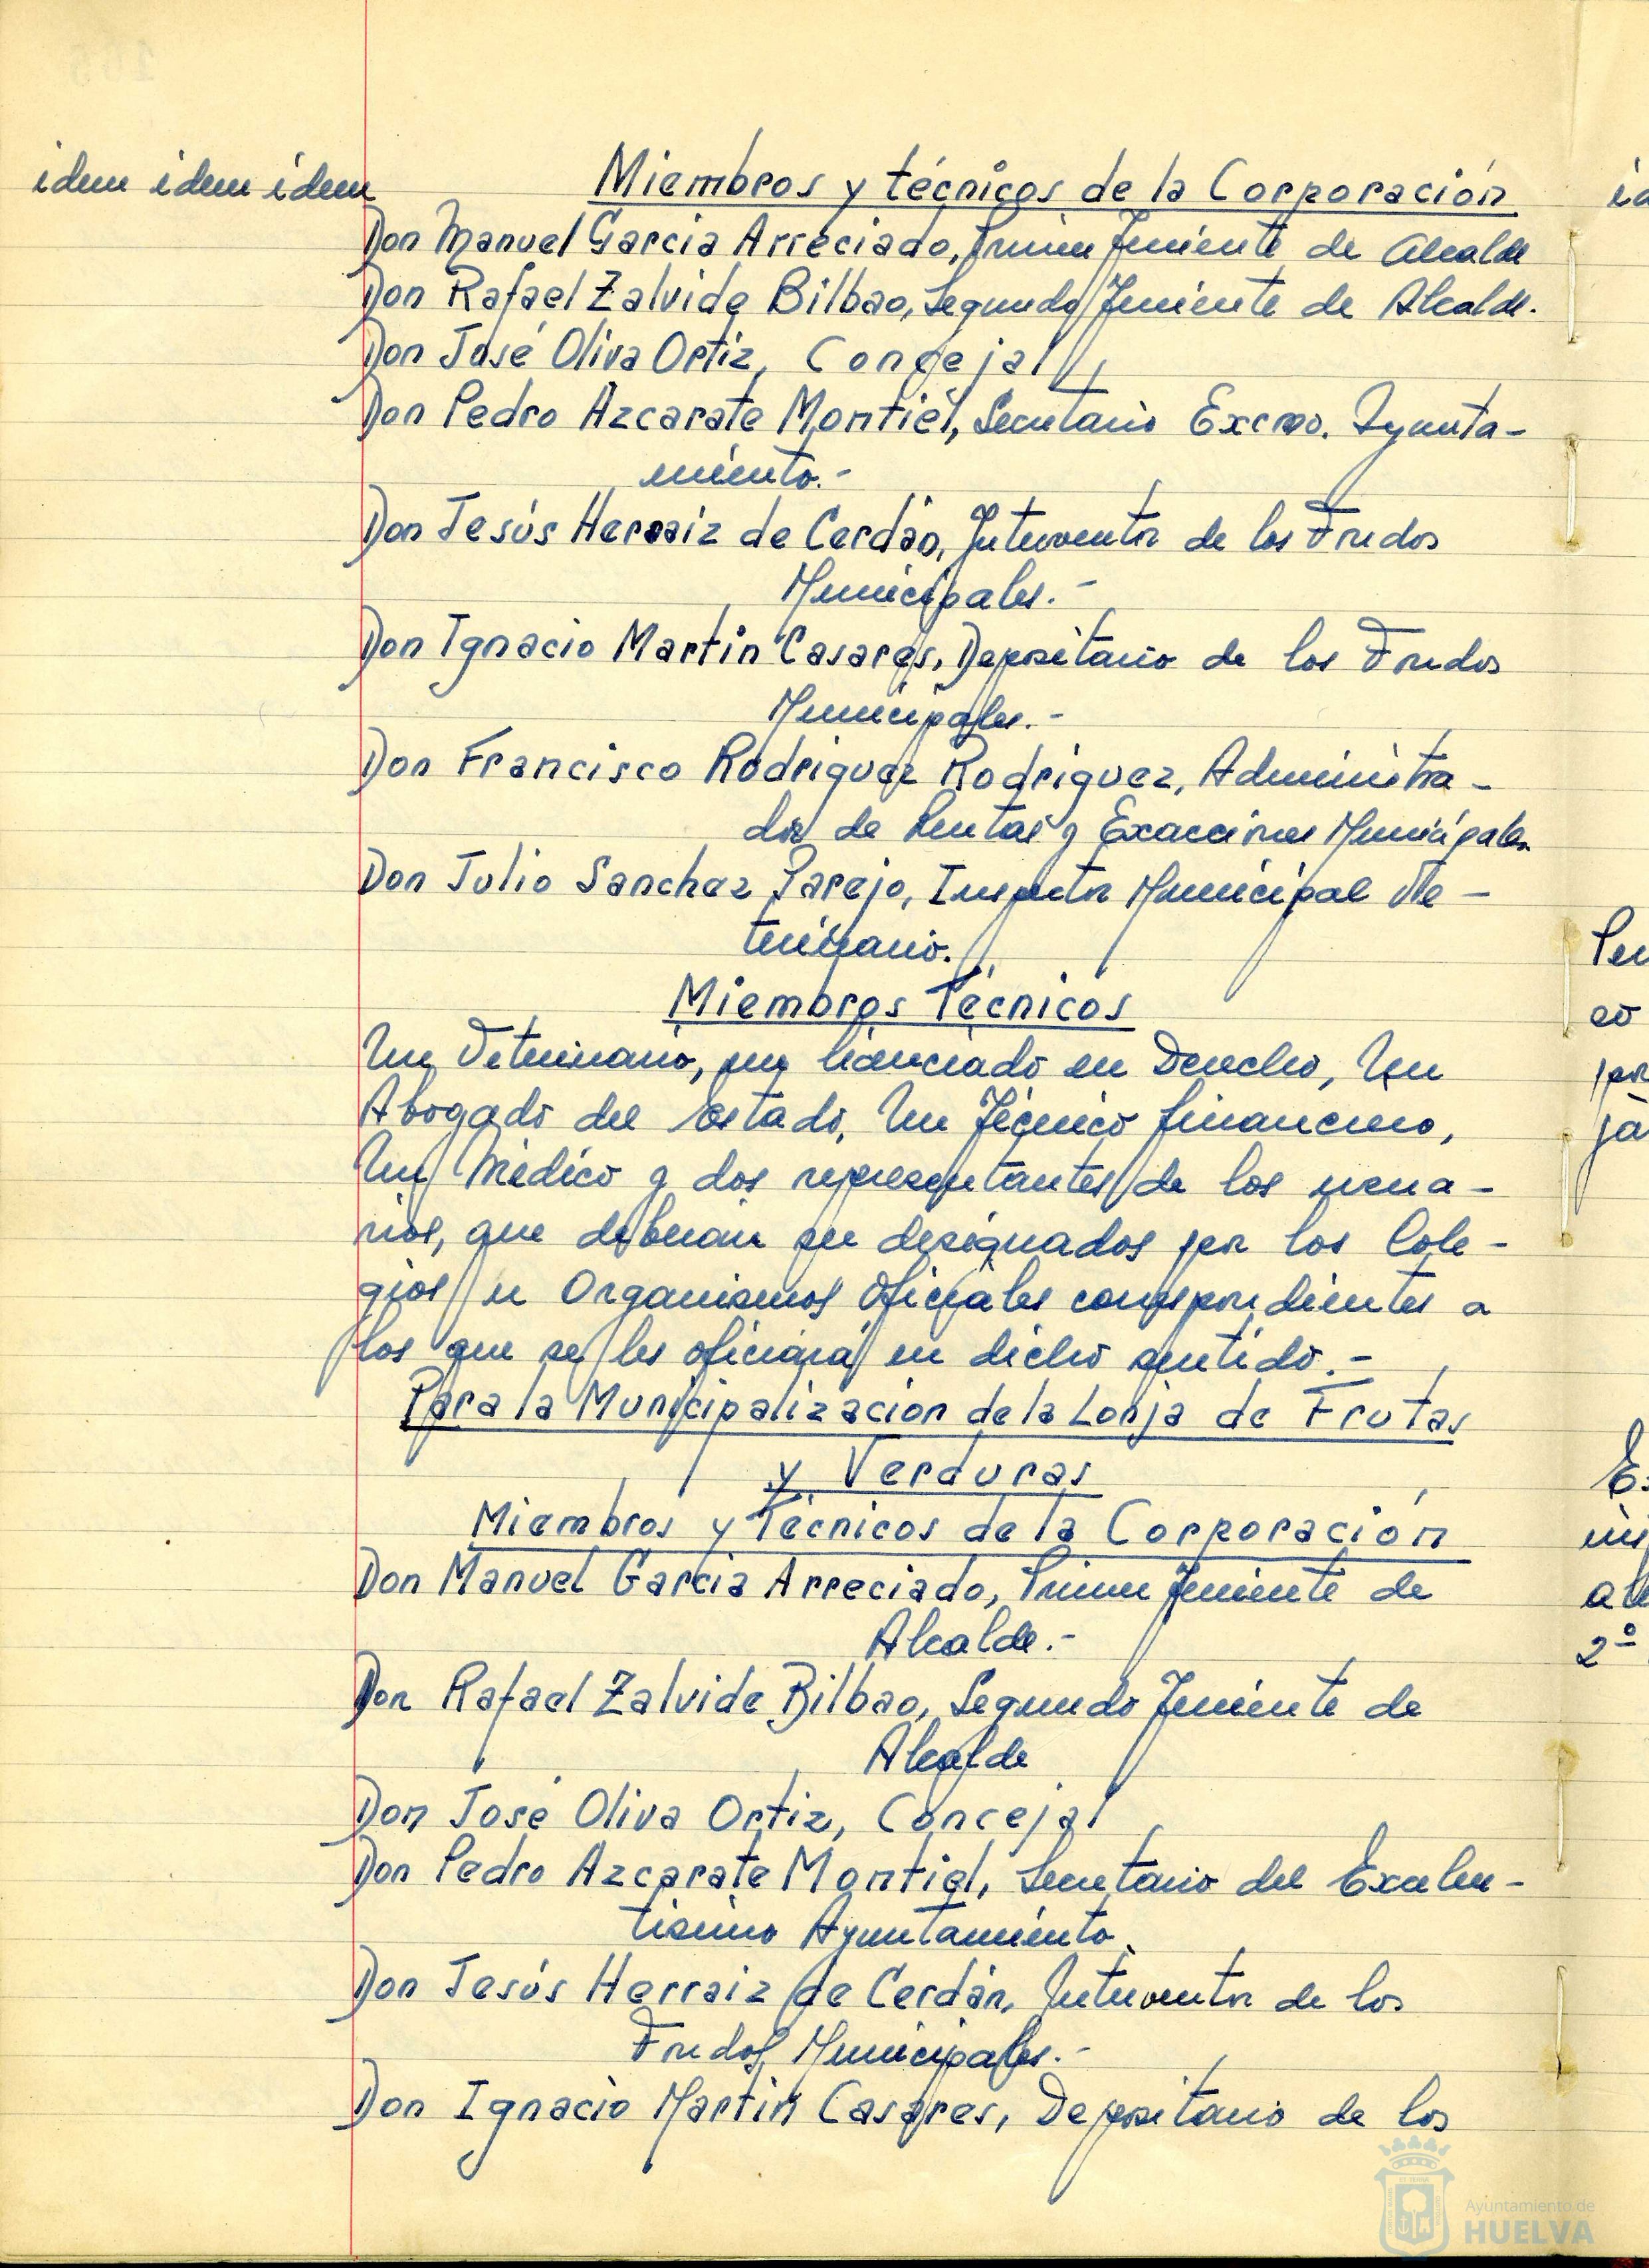 idem idem idem
Miembros y técnicos de la Corporación
Don Manuel Garcia Arreciado, Primer Teniente de Alcalde
Don Rafael Zalvide Bilbao, Segundo Teniente de Alcalde.
Don José Oliva Ortiz, Concejal
Don Pedro Azcarate Montiel, Secretario Excmo. Ayunta-
miento.-
Don Jesús Herraiz de Cerdán, Interventor de los Fondos
Municipales.-
Don Ignacio Martin Casares, Depositario de los Fondos
Municipales.-
Don Francisco Rodriguez Rodriguez, Administra-
dor de Rentas y Exacciones Municipales
Don Julio Sanchez Parejo, Inspector Municipal Ve-
terinario.
Miembros Técnicos
Un Veterinario, un licenciado en Derecho, Un
Abogado del Estado, Un Técnico financiero,
Un Médico y dos representantes de los usua-
rios, que deberán ser designados por los Cole-
gios u Organismos Oficiales correspondientes a
los que se les oficiará en dicho sentido.-
Para la Municipalización de la Lonja de Frutas
y Verduras
Miembros y Técnicos de la Corporación
Don Manuel Garcia Arreciado, Primer Teniente de
Alcalde.-
Don Rafael Zalvide Bilbao, Segundo Teniente de
Alcalde
Don José Oliva Ortiz, Concejal
Don Pedro Azcarate Montiel, Secretario del Excelen-
tisimo Ayuntamiento.
Don Jesús Herraiz de Cerdán, Interventor de los
Fondos Municipales.-
Don Ignacio Martin Casares, Depositario de los
Ayuntamiento de
HUELVA